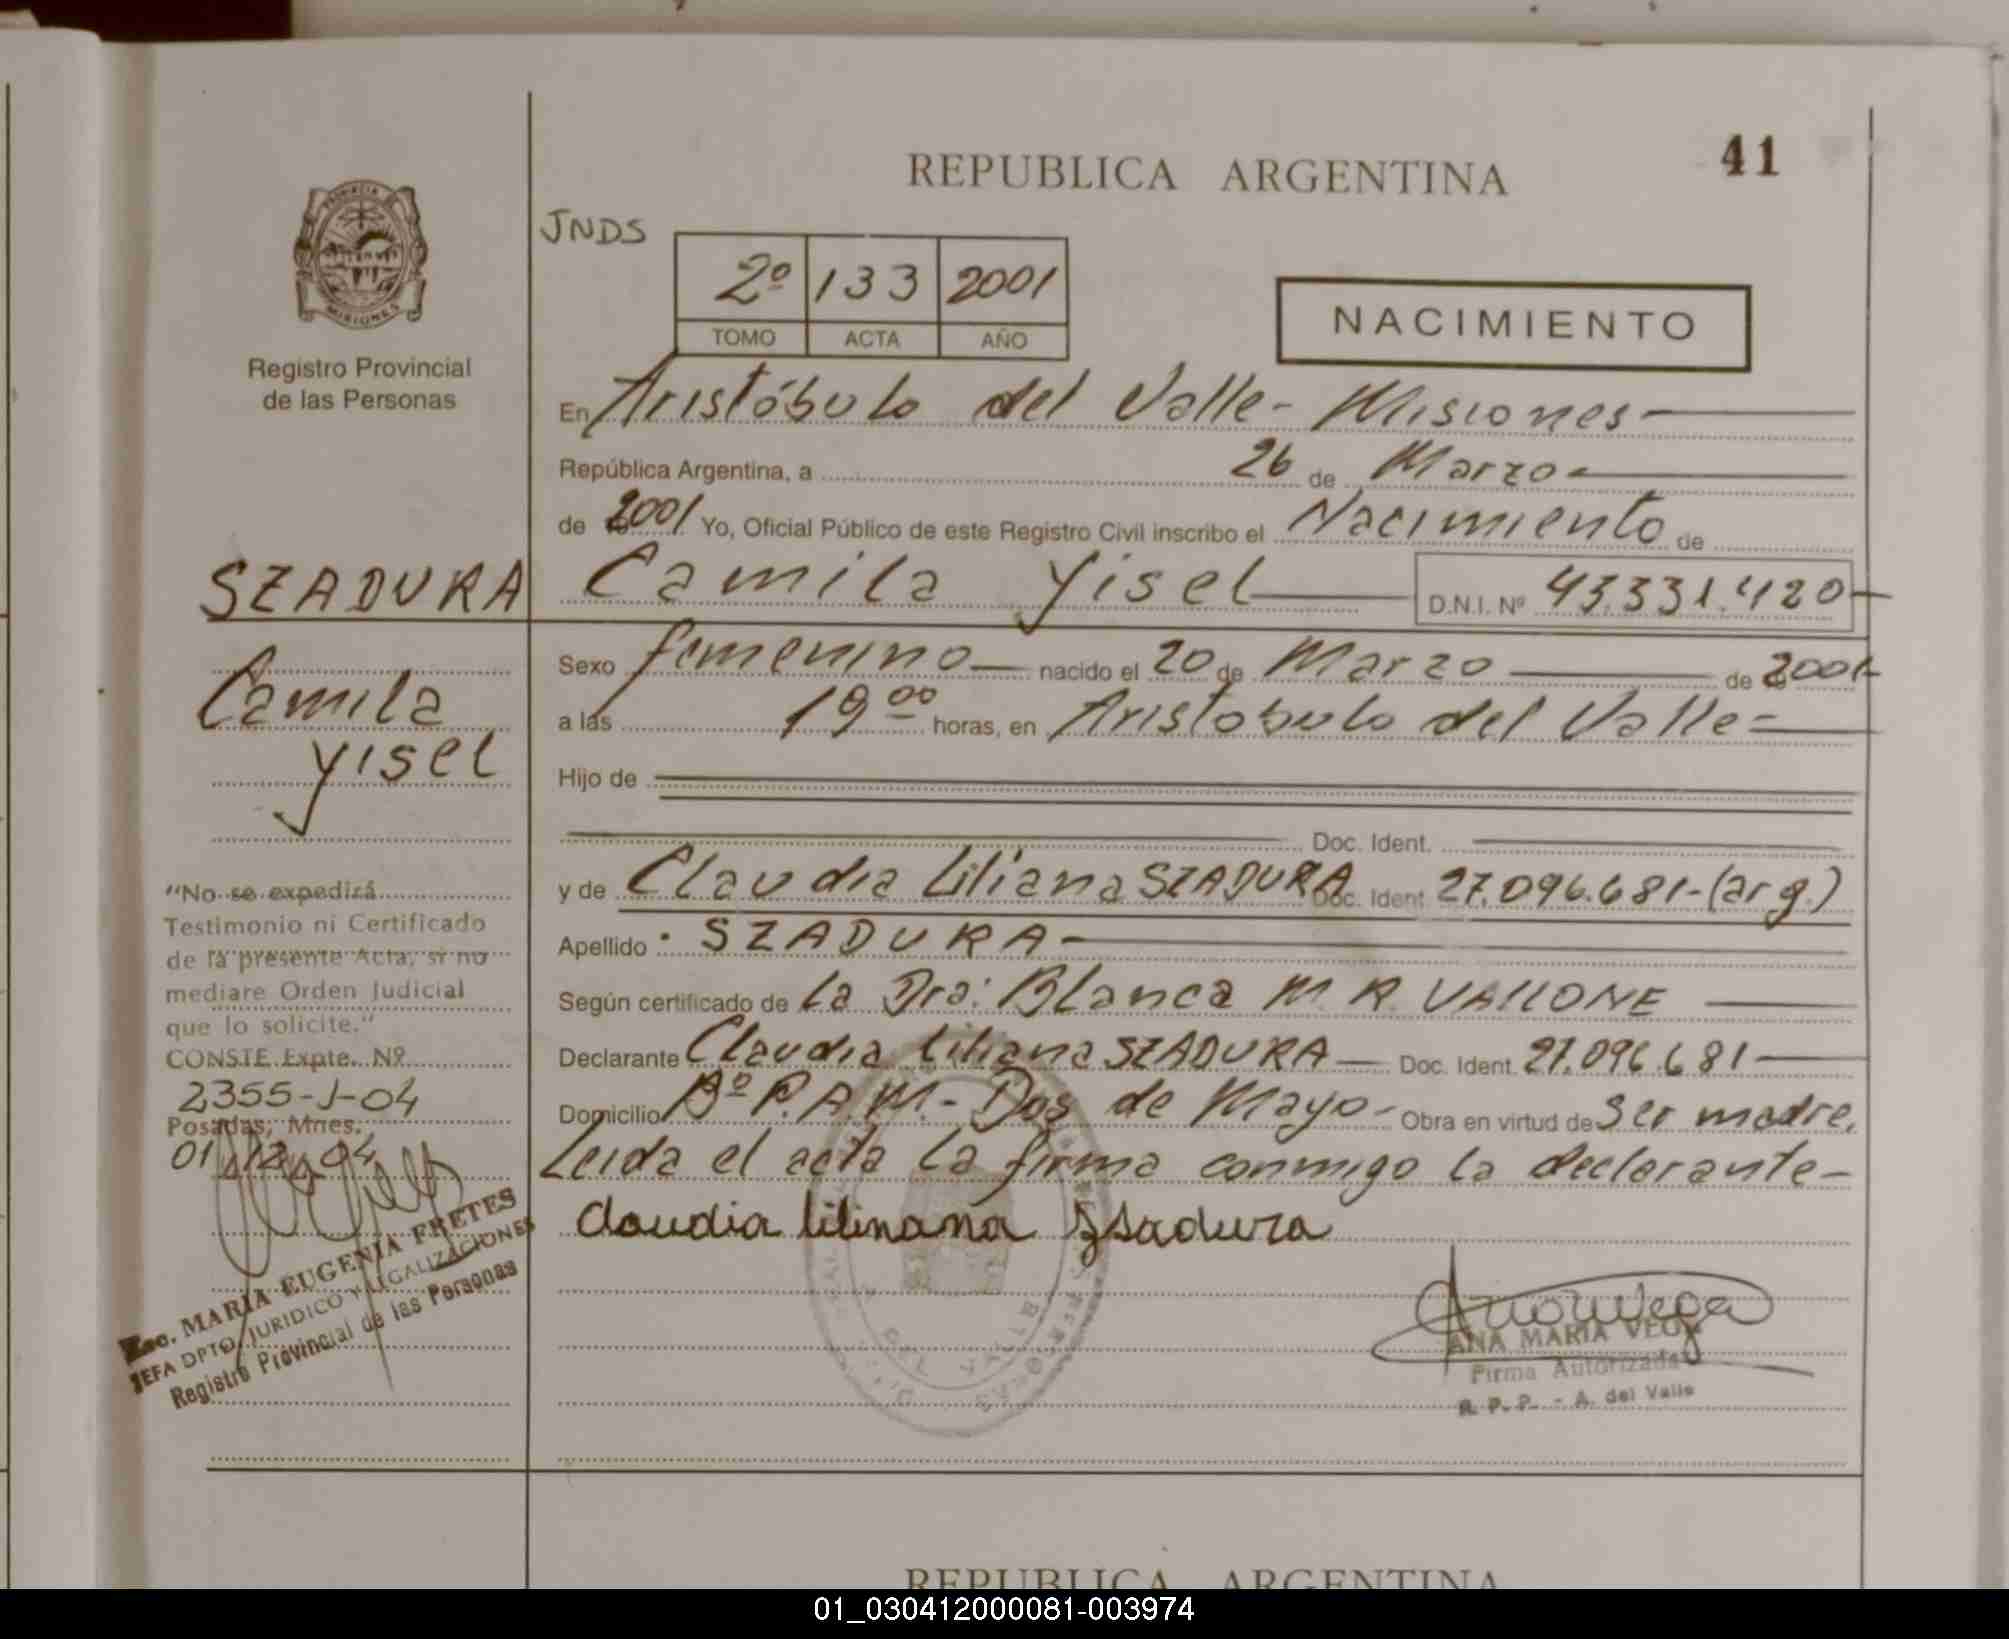 REPUBLICA ARGENTINA
41
PROVINCIA
MISIONES
Registro Provincial
de las Personas
JNDS
2º 133 2001
TOMO ACTA AÑO
NACIMIENTO
En Aristóbulo del Valle - Misiones
República Argentina, a 26 de Marzo
de 2001 Yo, Oficial Público de este Registro Civil inscribo el Nacimiento de
Camila Yisel D.N.I. Nº 43.331.420
Sexo femenino nacido el 20 de Marzo de 2001
a las 19 00 horas, en Aristobulo del Valle
Hijo de
Doc. Ident.
y de Claudia Liliana SZADURA Doc. Ident. 27.096.681-(arg.)
Apellido SZADURA
Según certificado de la Dra: Blanca M. R. VALLONE
Declarante Claudia Liliana SZADURA Doc. Ident. 27.096.681
Domicilio Bº P.A.M. - Dos de Mayo - Obra en virtud de Ser madre.
Leida el acta la firma conmigo la declarante
Claudia lilinana Szadura
ANA MARIA VEGA
Firma Autorizada
R. P. P. - A. del Valle
SZADURA
Camila
Yisel
"No se expedirá
Testimonio ni Certificado
de la presente Acta, si no
mediare Orden Judicial
que lo solicite."
CONSTE Expte. Nº
2355-J-04
Posadas, Mnes.
01 12 04
Esc. MARIA EUGENIA FRETES
JEFA DPTO. JURIDICO Y LEGALIZACIONES
Registro Provincial de las Personas
REPUBLICA ARGENTINA
01_030412000081-003974